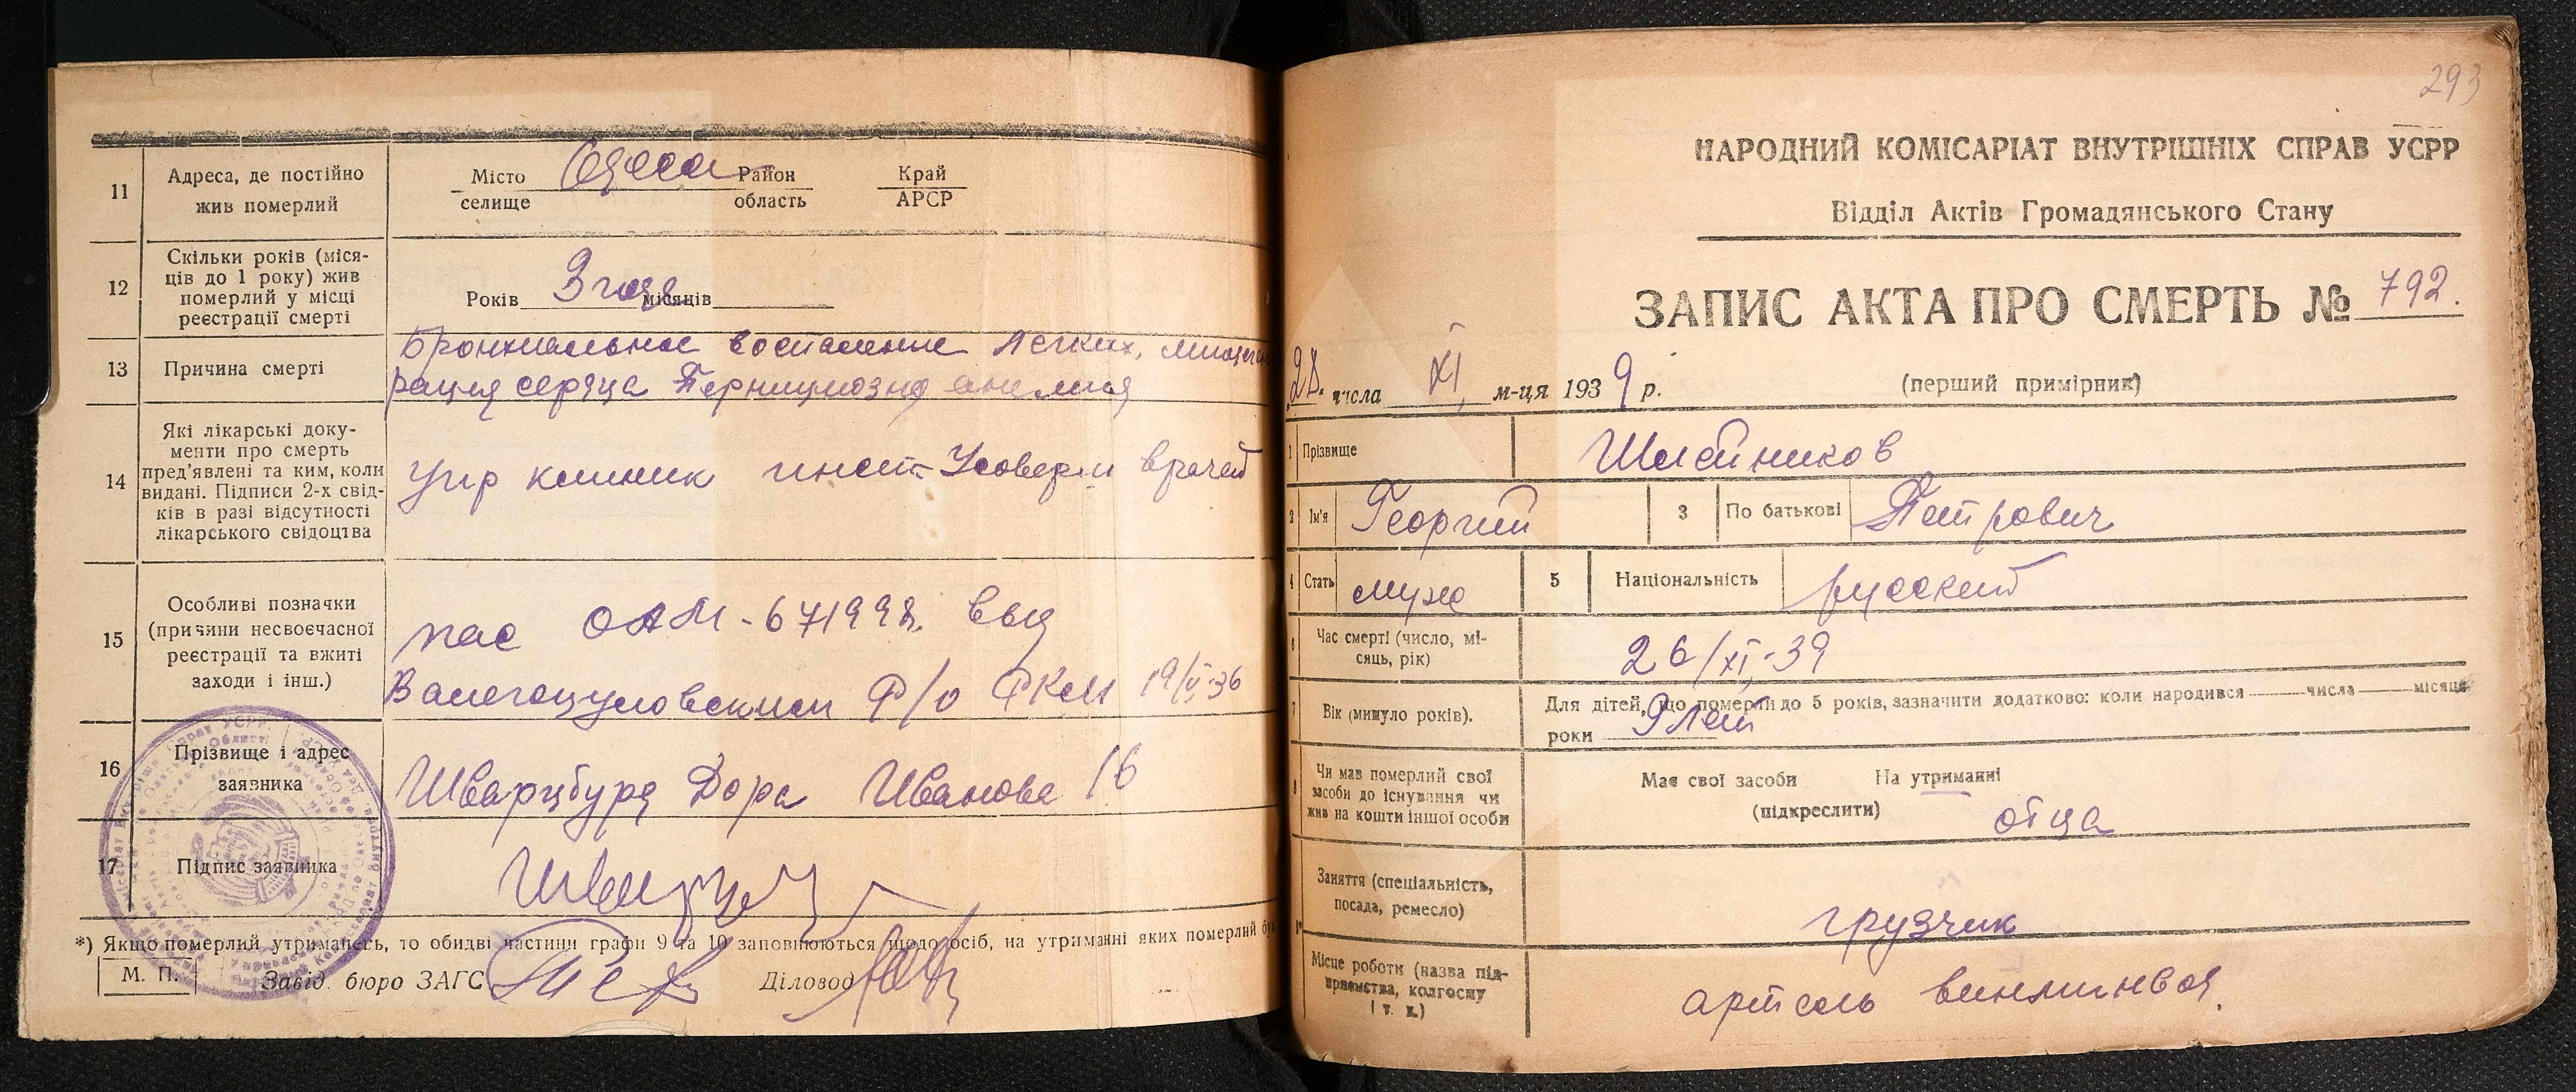 11
Адреса, де постійно
жив померлий
Місто Одесса Район Край
селище область АРСР
12
Скільки років (міся-
ців до 1 року) жив
померлий у місці
реєстрації смерті
Років 3 года місяців
13
Причина смерті
Бронхиальное воспаление легких,
рация сердца Пернициозно анемия
14
Які лікарські доку-
менти про смерть
пред'явлені та ким, коли
видані. Підписи 2-х свід-
ків в разі відсутності
лікарського свідоцтва
Упр клиник инст Усоверш врачей
15
Особливі позначки
(причини несвоєчасної
реєстрації та вжиті
заходи і інш.)
пас ОАМ - 671998. выд
Валегоцуловским Р/о РКМ 19/VI-36
16
Прізвище і адрес
заявника
Шварцбурд Дора Иванова 16
17
Підпис заявника
*) Якщо померлий утриманець, то обидві частини графи 9 та 10 заповнюються щодо осіб, на утриманні яких померлий бу
М. П.
Завід. бюро ЗАГС Діловод
293
НАРОДНИЙ КОМІСАРІАТ ВНУТРІШНІХ СПРАВ УСРР
Відділ Актів Громадянського Стану
ЗАПИС АКТА ПРО СМЕРТЬ № 792.
28. числа XI, м-ця 1939 р. (перший примірник)
1 Прізвище
2 Ім'я Георгий 3 По батькові Петрович
4 Стать муж 5 Національність русский
6
Час смерті (число, мі-
сяць, рік)
26/XI-39
7
Вік (минуло років).
Для дітей, що померли до 5 років, зазначити додатково: коли народився числа місяця
роки 9 лет
8
Чи мав померлий свої
засоби до існування чи
жив на кошти іншої особи
Має свої засоби На утриманні
(підкреслити) отца
Заняття (спеціальність,
посада, ремесло)
грузчик
Місце роботи (назва під-
приємства, колгоспу
і т. и.)
артель